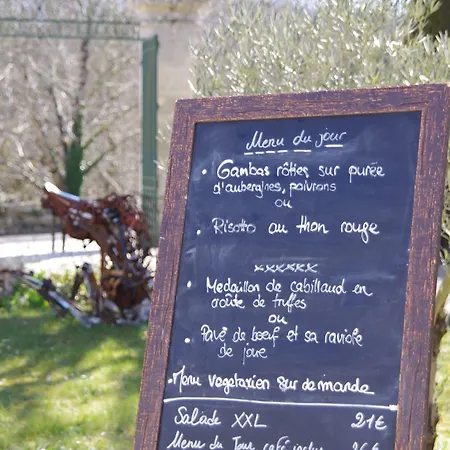 Menu du jour
• Gambas rôties sur purée
d'aubergines, poivrons
ou
• Risotto au thon rouge
xxxxxx
• Medaillon de cabillaud en
croûte de truffes
ou
• Pavé de bœuf et sa raviole
de joue
• Menu vegetarien sur demande
Salade XXL 21€
Menu du Jour café inclus 26€